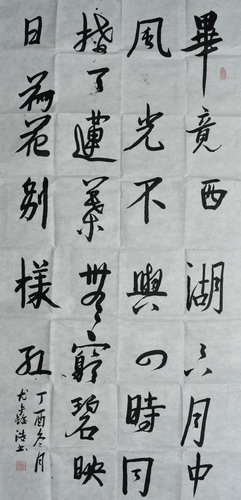 畢竟西湖六月中
風光不與四時同
接天蓮葉無窮碧映
日荷花別樣紅
丁酉冬月